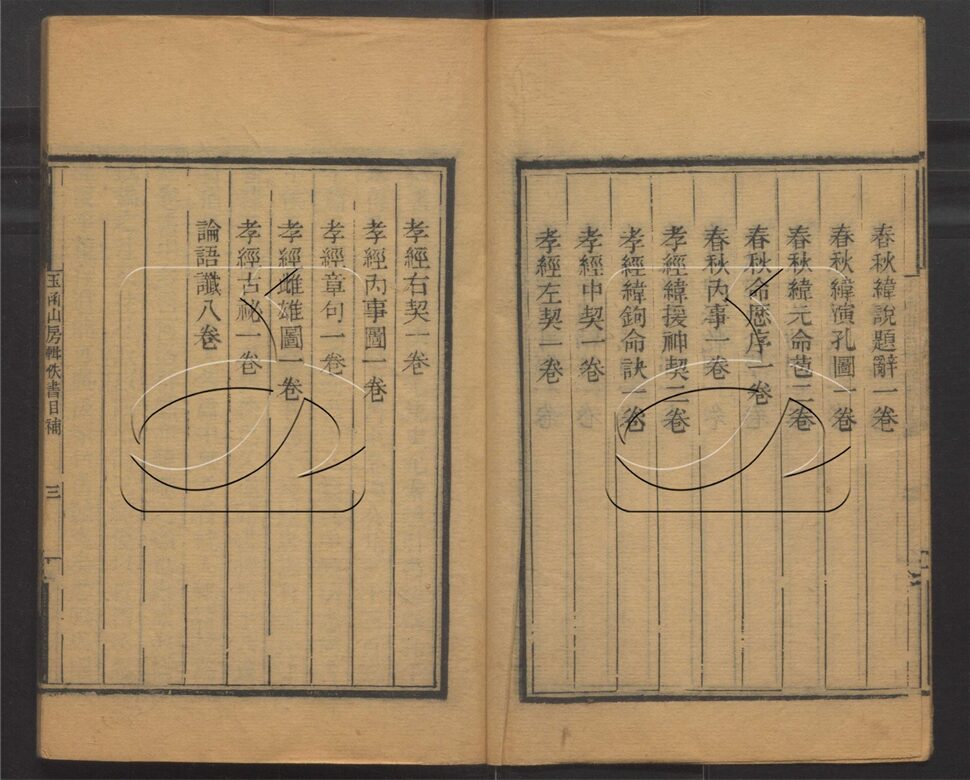 春秋緯說題辭一卷
春秋緯演孔圖一卷
春秋緯元命苞二卷
春秋命歷序一卷
春秋內事一卷
孝經緯援神契二卷
孝經緯鉤命訣一卷
孝經中契一卷
孝經左契一卷
孝經右契一卷
孝經內事圖一卷
孝經章句一卷
孝經雌雄圖一卷
孝經古祕一卷
論語讖八卷
玉函山房輯佚書目補
三